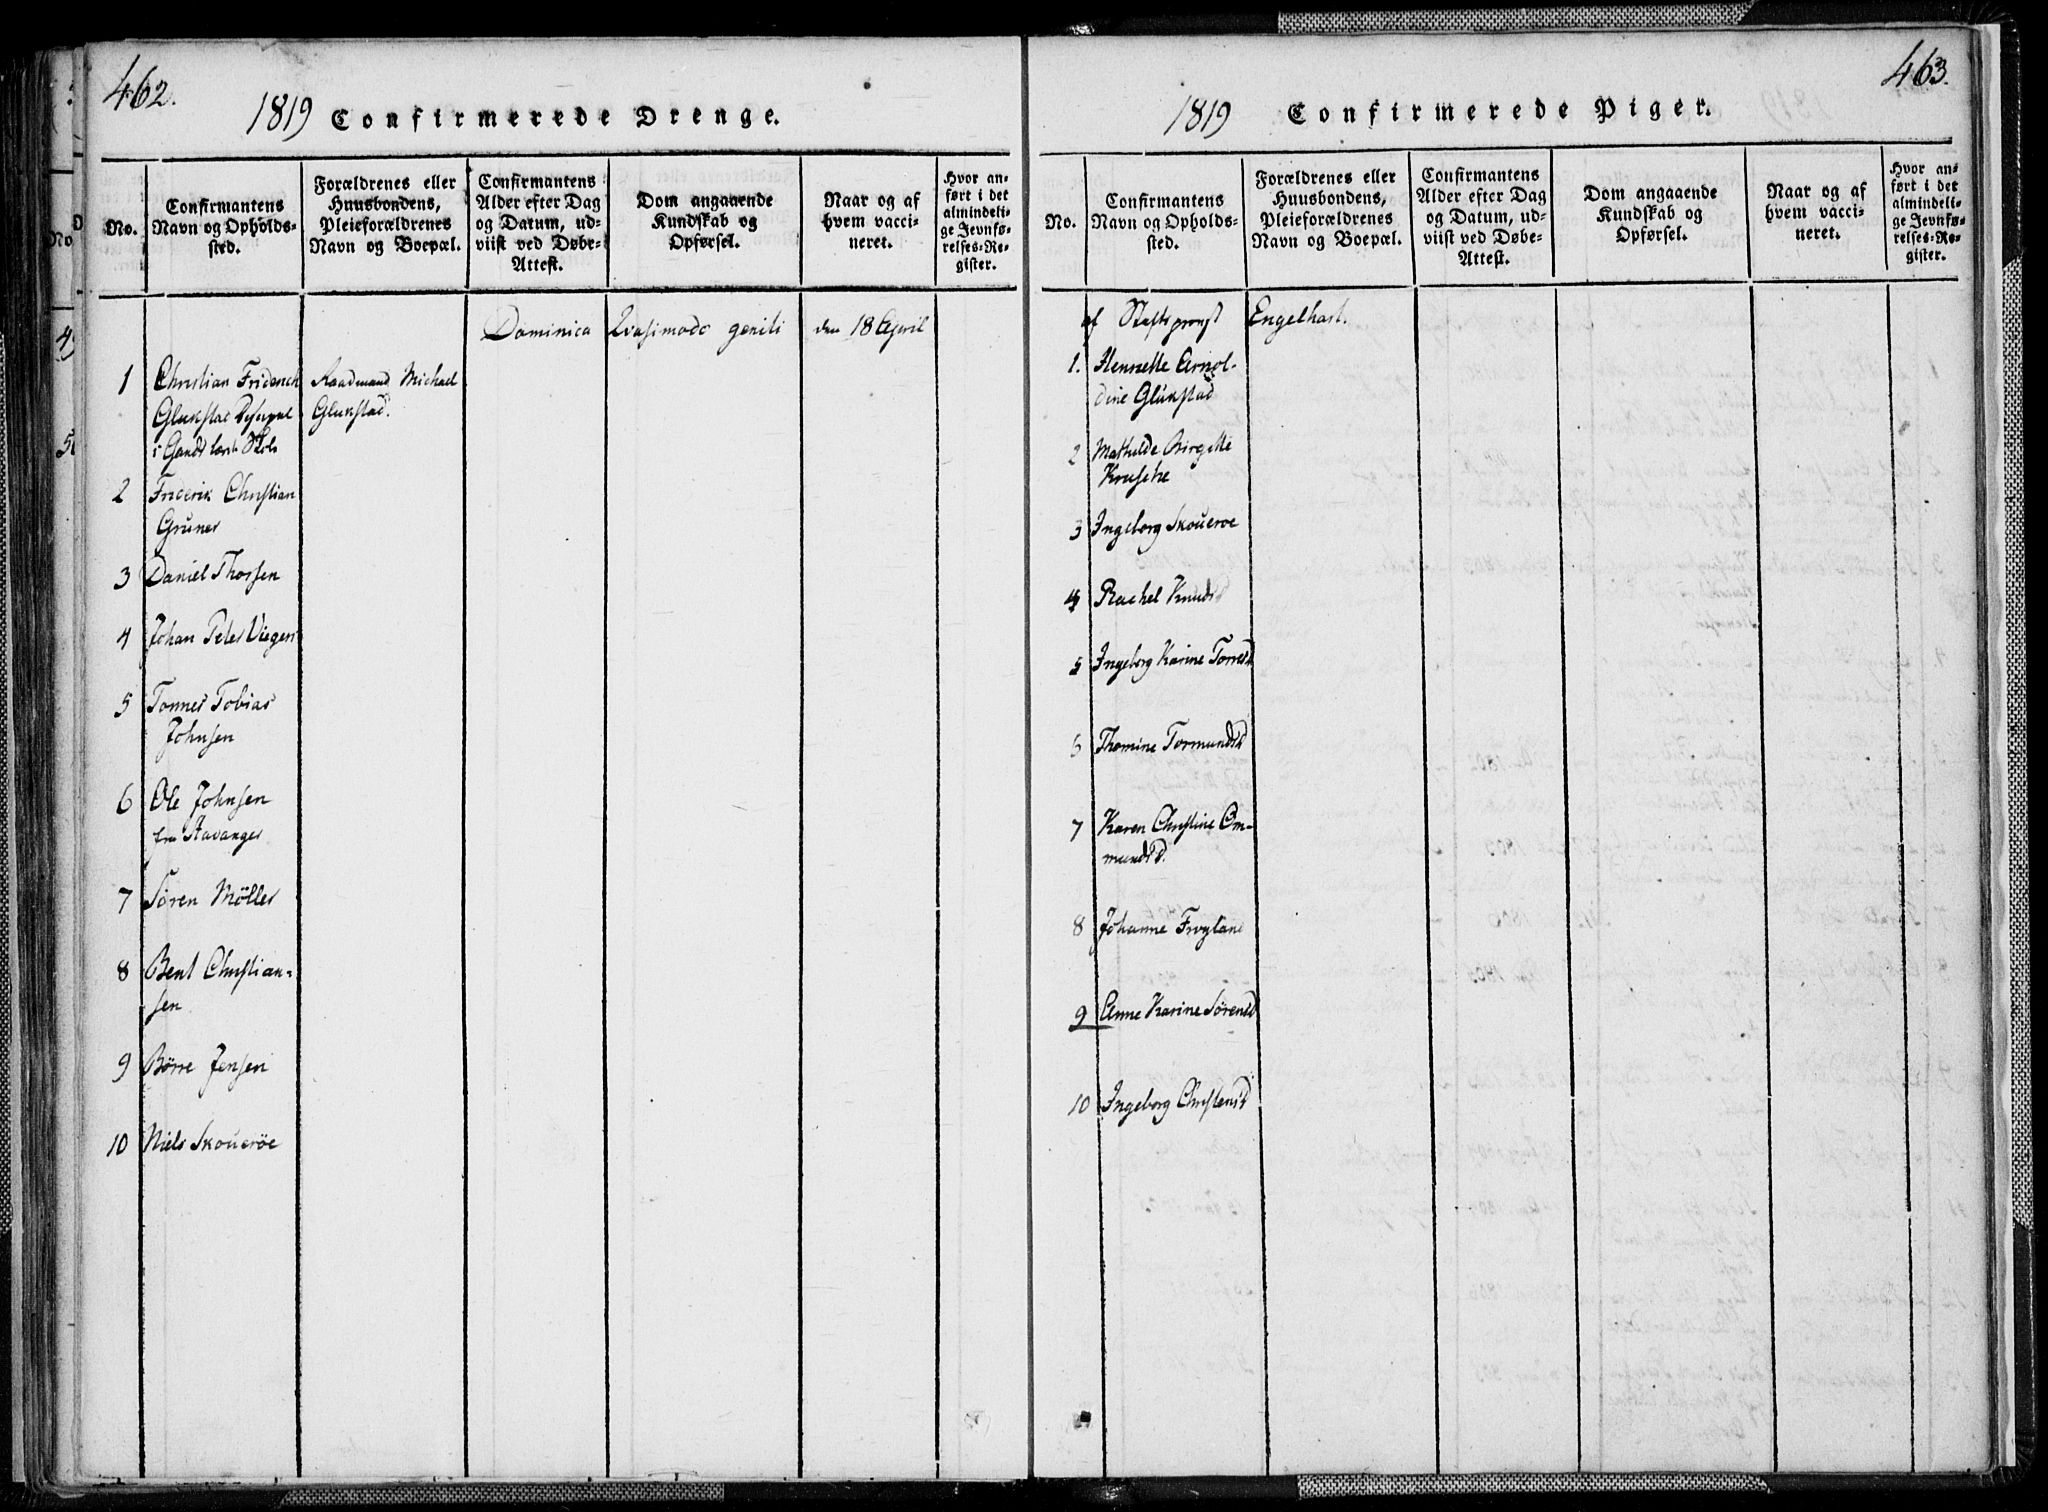 462.
1819 Confirmerede Drenge.
No.
Confirmantens
Navn og Opholds-
sted.
Forældrenes eller
Huusbondens,
Pleieforældrenes
Navn og Boepæl.
Confirmantens
Alder efter Dag
og Datum, ud-
viist ved Døbe-
Attest.
Dom angaaende
Kundskab og
Opførsel.
Naar og af
hvem vacci-
neret.
Hvor an-
ført i det
almindeli-
ge Jevnfø-
relses-Re-
gister.
Dominica Qvasimodo geniti den 18 April
1 Christian Friderich Raadmand Michael
Glukstad Glukstad.
2 Friderik Christian
Gruner
3 Daniel Thorsen
4 Johan Peter Viegen
5 Tonnes Tobias
Johnsen
6 Ole Johnsen
fra Stavanger
7 Sören Möller
8 Bent Christian-
sen
9 Börre Jensen
10 Niels Skoueröe
463.
1819 Confirmerede Piger.
No.
Confirmantens
Navn og Opholds-
sted.
Forældrenes eller
Huusbondens,
Pleieforældrenes
Navn og Boepæl.
Confirmantens
Alder efter Dag
og Datum, ud-
viist ved Døbe-
Attest.
Dom angaaende
Kundskab og
Opførsel.
Naar og af
hvem vacci-
neret.
Hvor an-
ført i det
almindeli-
ge Jevnfø-
relses-Re-
gister.
af Stiftsprovst Engelhart.
1. Hennette Arnol-
dine Glükstad
2 Mathilde Birgitte
Krusche
3 Ingeborg Skoueroe
4 Rachel Knuds
5 Ingeborg Karine Torresd
6 Thomine Tormundsd
7 Karen Christine Om-
mundsd.
8 Johanne Frøyland
9 Anne Karine Sørensd
10 Ingeborg Christensd